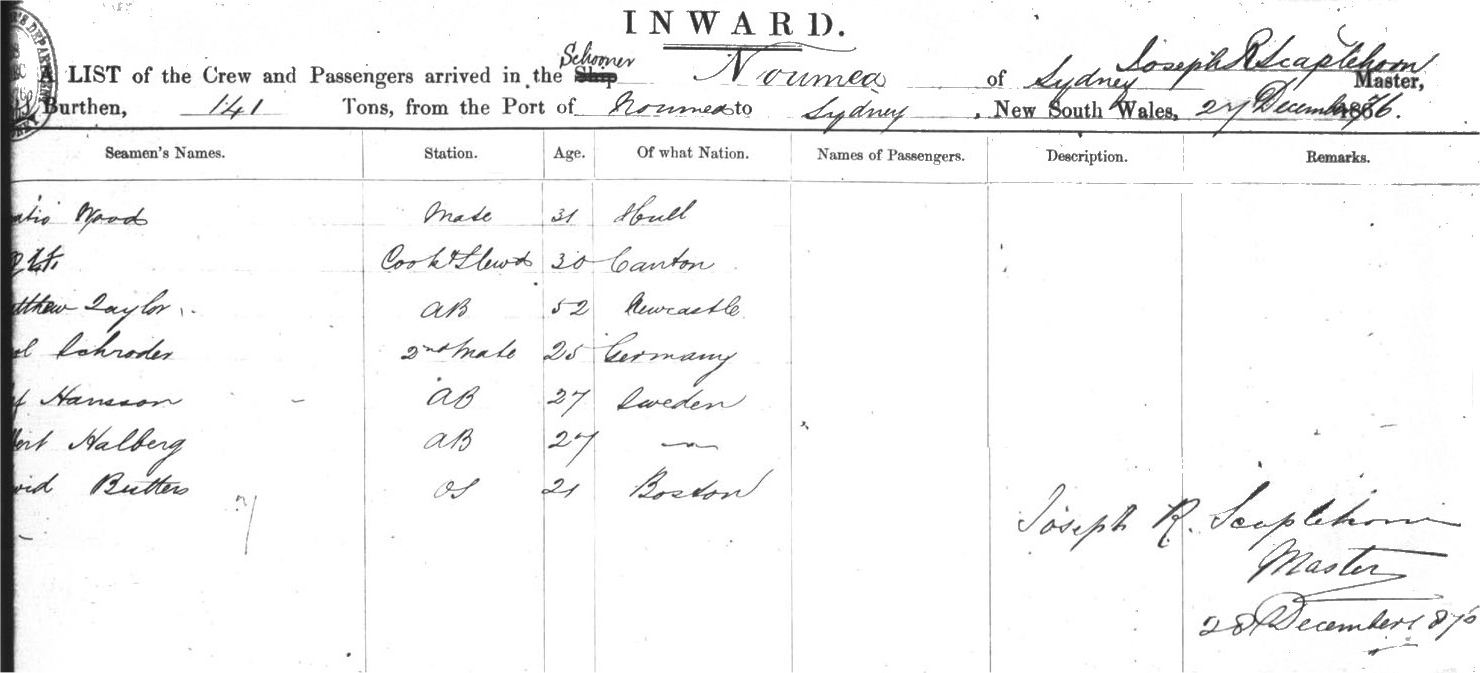 INWARD.
A LIST of the Crew and Passengers arrived in the Schooner Ship Noumea of Sydney Joseph R Scaplehorn Master,
Burthen, 141 Tons, from the Port of Noumea to Sydney, New South Wales, 27 December 1876.
Seamen's Names. Station. Age. Of what Nation. Names of Passengers. Description. Remarks.
Wood Mate 31 Hull
Cook & Stewd 30 Canton
tthew Taylor AB 52 Newcastle
Schroder 2nd Mate 25 Germany
Hansson AB 27 Sweden
bert Halberg AB 27 —
vid Butters OS 21 Boston
7
Joseph R. Scaplehorn
Master
28 December 1876